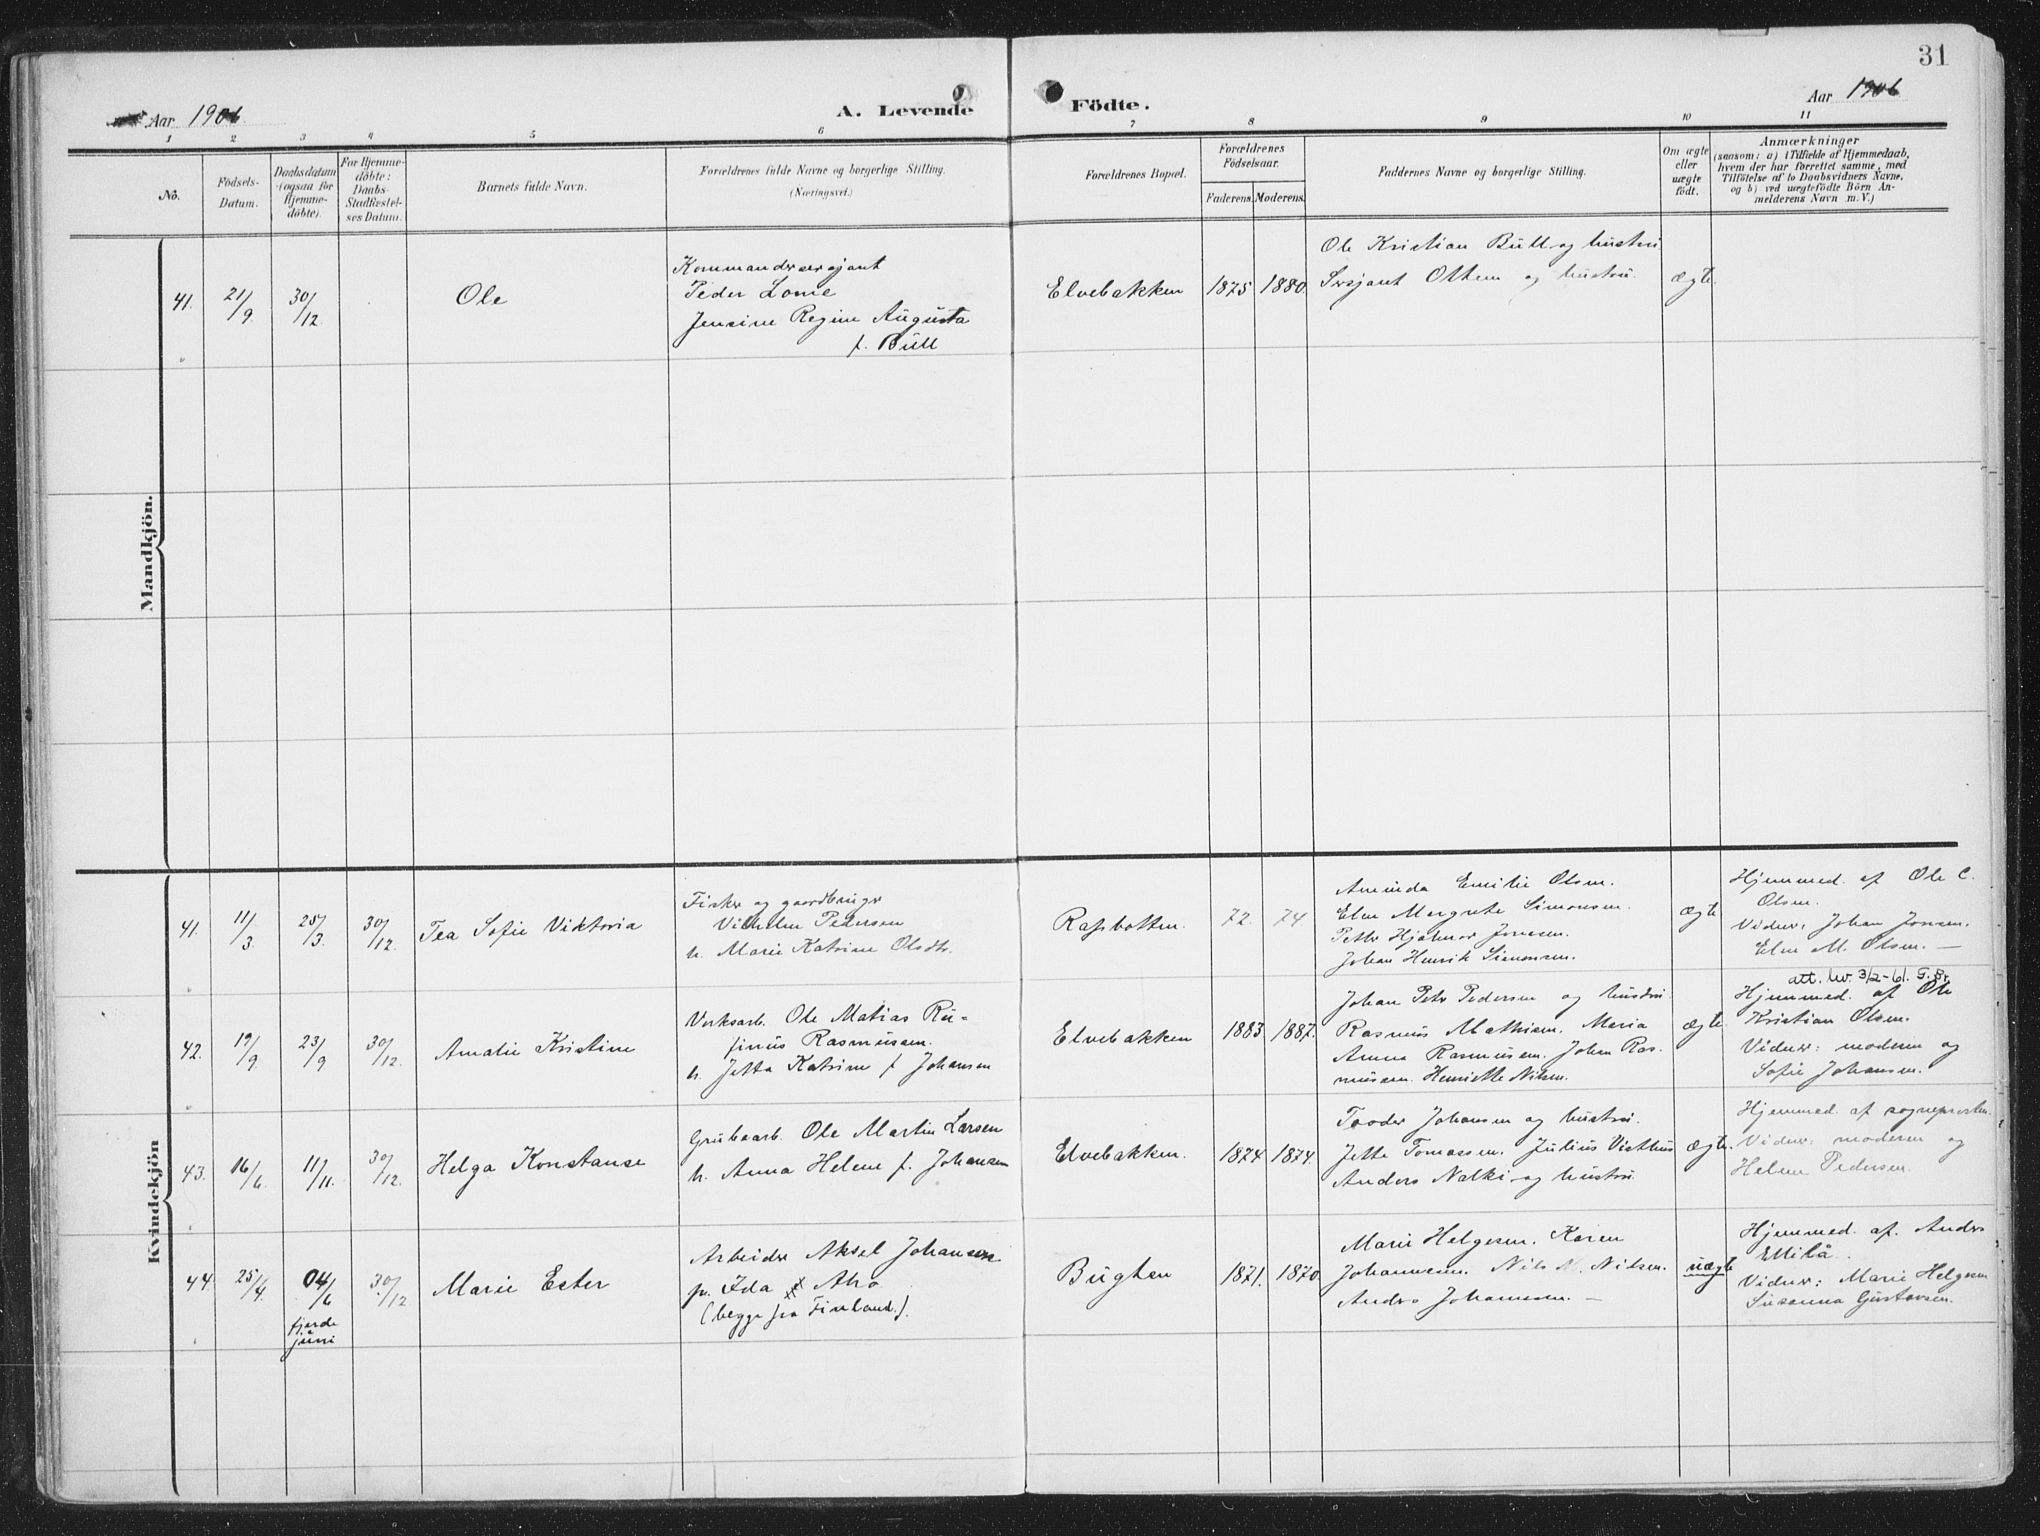 31
Aar 1906.
A. Levende
Födte.
Aar 1906
1 2 3 4 5 6 7 8 9 10 11
No.
Födsels-
Datum.
Daabsdatum
(ogsaa for
Hjemme-
döbte).
For Hjemme-
döbte:
Daabs-
Stadfæstel-
ses Datum.
Barnets fulde Navn.
Forældrenes fulde Navne og borgerlige Stilling.
(Næringsvei.)
Forældrenes Bopæl.
Forældrenes
Födselsaar.
Faderens. Moderens.
Faddernes Navne og borgerlige Stilling.
Om ægte
eller
uægte
födt.
Anmærkninger
(saasom: a) i Tilfælde af Hjemmedaab,
hvem der har forrettet samme, med
Tilföielse af to Daabsvidners Navne,
og b) ved uægtefödte Börn An-
melderens Navn m. V.)
Mandkjön.
41. 21/9 30/12 Ole
Kommandersersjant
Peder Lome
Jensine Regine Augusta
f. Bull
Elvebakken 1875 1880.
Ole Kristian Bull og hustru
Sersjant Ottem og hustru.
ægte.
Kvindekjön
41. 11/3. 25/3. 30/12. Tea Sofie Viktoria
Fisker og gaardbruger
Vilhelm Pedersen
h. Marie Katrine Olsdtr.
Rafsbotten. 72. 74
Aminda Emilie Olsen.
Elen Margrete Simonsen.
Petter Hjalmar Jonesen.
Johan Henrik Simonsen.
ægte
Hjemmed. af Ole C.
Olsen.
Vidner: Johan Jonsen.
Elen M. Olsen. —
42. 19/9. 23/9 30/12. Amalie Kristine
Verksarb. Ole Matias Ru-
finus Rasmussen.
h. Jetta Katrine f. Johansen
Elvebakken 1883 1887.
Johan Petr Pedersen og hustru.
Rasmus Mathisen. Maria
Amna Rasmussen. Johan Ras-
mussen. Henriette Nilsen.
ægte.
att. lev. 3/2-61. G. Br.
Hjemmed. af Ole
Kristian Olsen.
Vidner: moderen og
Sofie Johansen.
43. 16/6. 11/11. 30/12. Helga Konstanse
Grubearb. Ole Martin Larsen
h. Anna Helene f. Johansen
Elvebakken. 1874 1874.
Tooder Johansen og hustru.
Jette Tomassen. Julius Visthus
Anders Nalki og hustru.
ægte.
Hjemmed. af sogneprosten.
Vidner: moderen og
Helene Pedersen.
44. 25/4. 04/6 30/12. Marie Ester
fjerde
juni
Arbeider Aksel Johansen
p. Ida Aho
(begge fra Finland.)
Bugten 1871. 1870.
Marie Helgesen. Karen
Johannesen. Nils N. Nilsen.
Anders Johannesen. —
uægte
Hjemmed. af. Anders
Ellilä.
Vidner: Marie Helgesen
Susanna Gustavsen.